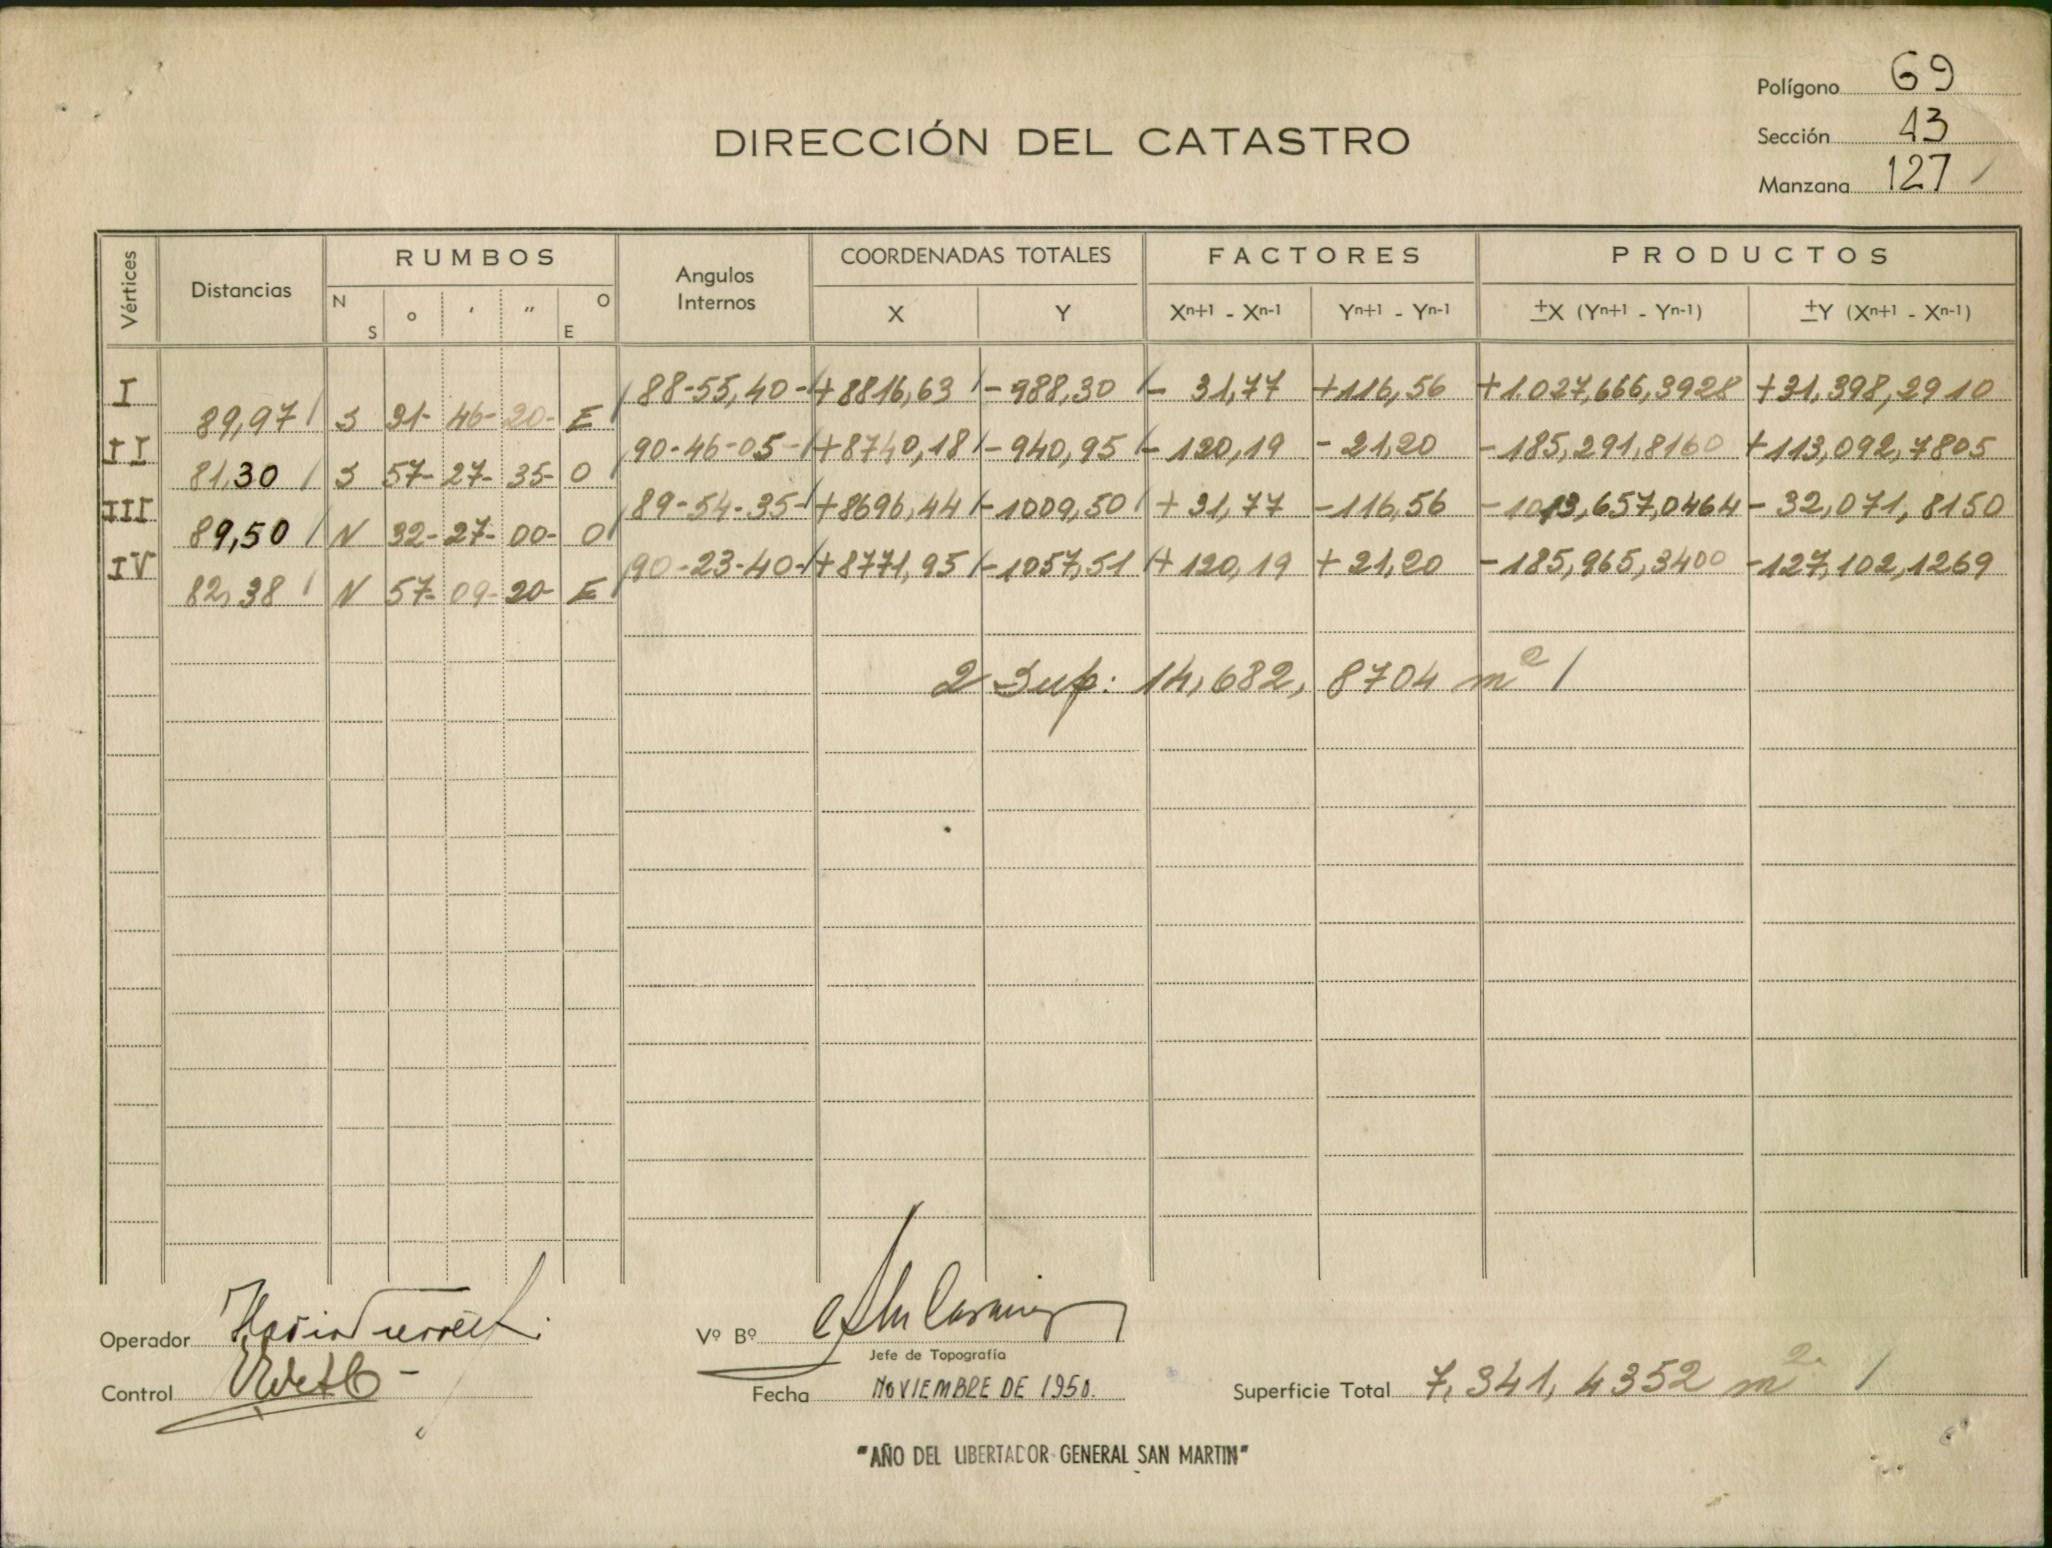 Polígono 69
DIRECCIÓN DEL CATASTRO
Sección 43
Manzana 127 /
Vértices Distancias RUMBOS Angulos Internos COORDENADAS TOTALES FACTORES PRODUCTOS
N S o ' " O E X Y Xn+1 - Xn-1 Yn+1 - Yn-1 ±X (Yn+1 - Yn-1) ±Y (Xn+1 - Xn-1)
I 88-55,40- +8816,63 -988,30 - 31,77 +116,56 +1.027,666,3928 +31,398,2910
89,97 S 31- 46- 20- E
II 90-46-05- +8740,18 -940,95 -120,19 - 21,20 -185,291,8160 +113,092,7805
81,30 S 57- 27- 35- O
III 89-54-35- +8696,44 -1009,50 + 31,77 -116,56 -1013,657,0464 - 32,071,8150
89,50 N 32- 27- 00- O
IV 90-23-40- +8771,95 -1057,51 +120,19 +21,20 -185,965,3400 -127,102,1269
82,38 N 57- 09- 20- E
2 Sup: 14,682,8704 m2 /
Operador
Vº Bº
Jefe de Topografía
Control
Fecha NOVIEMBRE DE 1950.
Superficie Total 7,341,4352 m2 /
"AÑO DEL LIBERTADOR GENERAL SAN MARTIN"